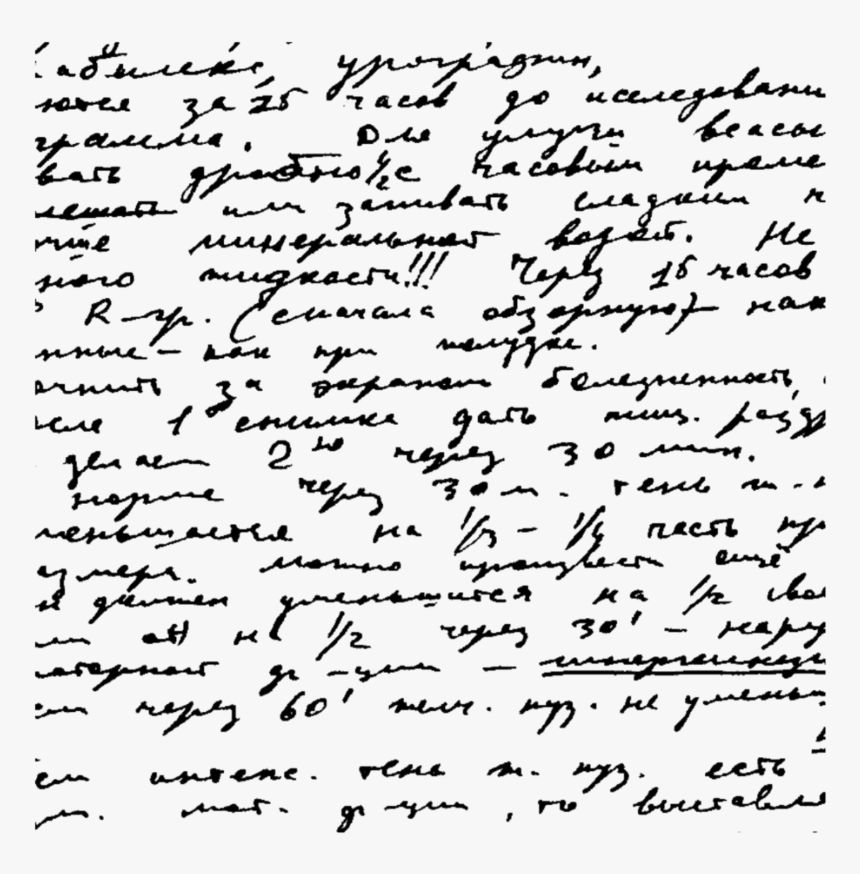 урографин,
ются за 15 часов до исследовани
грамма. Для улучш всасы
вать дробно ½ с часовым проме
лешать или запивать сладким ч
очие минеральной водой. Не
много жидкости!!! Через 15 часов
R-гр. (сначала обзорную) – нак
нные – как при желудке.
очнить за экраном болезненность,
осле 1го снимка дать пищ. раздр
делаем 2ю через 30 мин.
норме через 30 м. тень ж.
меньшается на 1/3 – 1/4 часть пр
азмера. Можно произвести ещё
должен уменьшится на 1/2 сво
на 1/2 через 30' – нару
моторной ф-ции –
ем через 60' желч. пуз. не уменьш
ем интенс. тень ж. пуз. есть
мот. ф-ции, то выставля